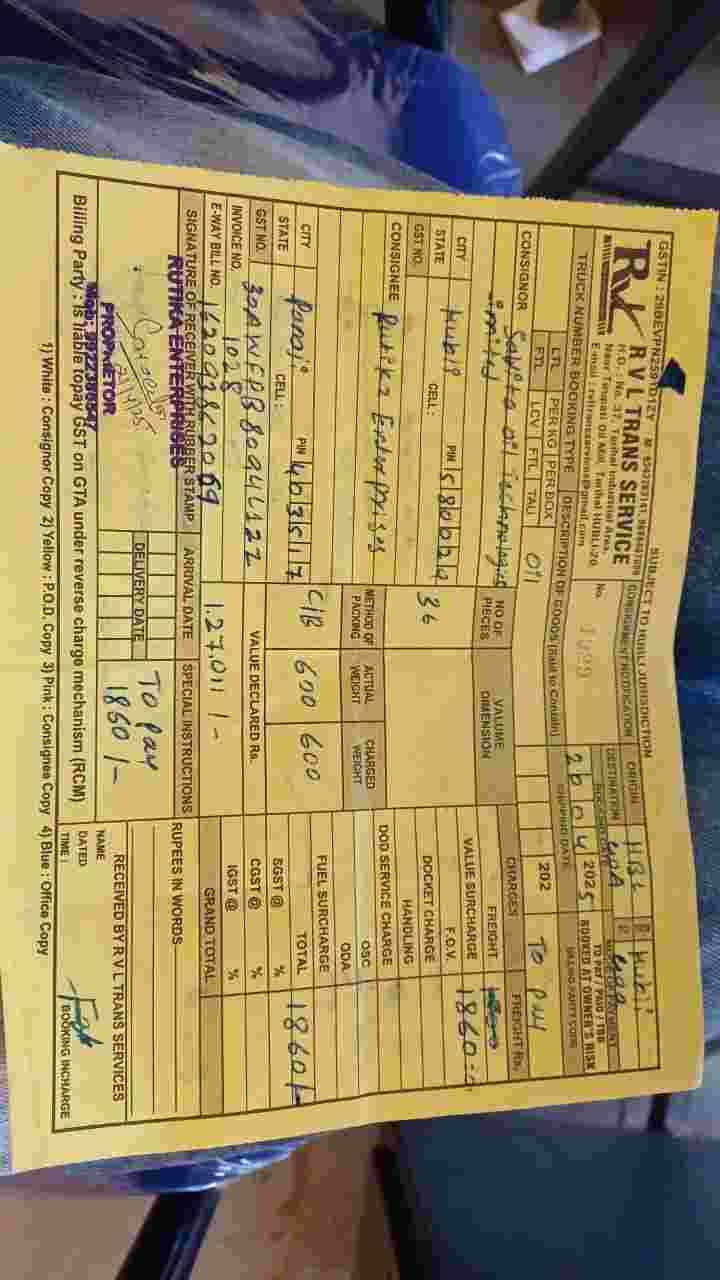 SUBJECT TO HUBLI JURISDICTION
R V L TRANS SERVICE
H.O. : No. 37, Tarihal Industrial Area,
Near Tirupati Oil Mill, Tarihal HUBLI-20
E-mail : rvltransservices@gmail.com
CONSIGNMENT NOTIFICATION
No.
ORIGIN HBL Hubli
DESTINATION GOA GOA
BOOKING DATE
26 04 2025
SHIPPING DATE
202
MODE OF PAYMENT
TO PAY / PAID / TBB
BOOKED AT OWNER'S RISK
BILLING PARTY CODE
To pay
TRUCK NUMBER BOOKING TYPE
LTL PER KG PER BOX
FTL LCV FTL TAU
DESCRIPTION OF GOODS (Said to Contain)
Oil
CONSIGNOR Savita oil technologies
limited
CITY Hubli PIN 580024
STATE CELL :
GST NO.
CONSIGNEE Rutika Enterprises
CITY Panaji PIN 403517
STATE CELL :
GST NO.
INVOICE NO. 1028
E-WAY BILL NO.
NO OF PIECES
36
VALUME DIMENSION
METHOD OF PACKING ACTUAL WEIGHT CHARGED WEIGHT
C/B 600 600
VALUE DECLARED Rs.
1,27,011/-
CHARGES FREIGHT Rs.
FREIGHT
VALUE SURCHARGE 1860
F.O.V.
DOCKET CHARGE
HANDLING
DOD SERVICE CHARGE
OSC
ODA
FUEL SURCHARGE
TOTAL 1860/-
SGST @ %
CGST @ %
IGST @ %
GRAND TOTAL
SIGNATURE OF RECEIVER WITH RUBBER STAMP
RUTIKA ENTERPRISES
PROPRIETOR
ARRIVAL DATE
DELIVERY DATE
SPECIAL INSTRUCTIONS
To pay
1860/-
RUPEES IN WORDS
RECEIVED BY R V L TRANS SERVICES
NAME
DATED
TIME :
BOOKING INCHARGE
Billing Party : Is liable topay GST on GTA under reverse charge mechanism (RCM)
1) White : Consignor Copy 2) Yellow : P.O.D. Copy 3) Pink : Consignee Copy 4) Blue : Office Copy